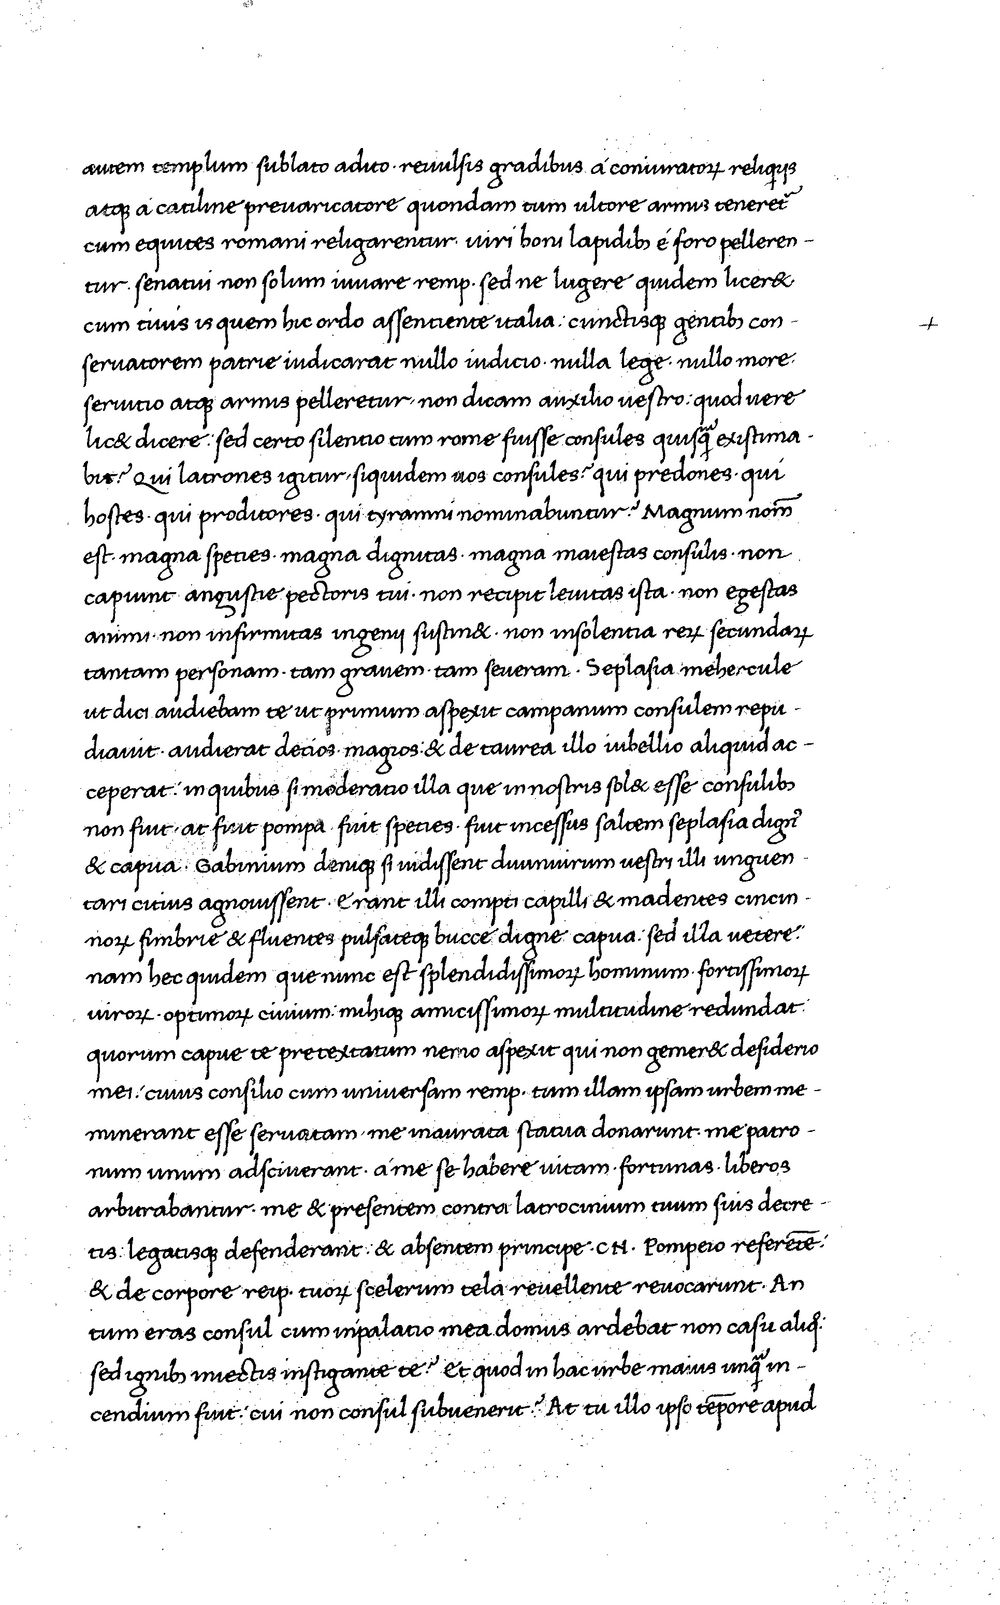 autem templum sublato adito · reuulsis gradibus á coniuratoꝝ reliquijs
atqꝫ á catiline preuaricatore quondam tum ultore armis teneret᷑
cum equites romani religarentur · uiri boni lapidibꝫ é foro pelleren-
tur · senatui non solum iuuare remp · sed ne lugere quidem licer&
cum ciuis is quem hic ordo assentiente italia : cunctisqꝫ gentibꝫ con-
seruatorem patrie iudicarat nullo iudicio · nulla lege · nullo more ·
seruitio atqꝫ armis pelleretur · non dicam auxilio uestro : quod uere
lic& dicere : sed certo silentio tum rome fuisse consules quisq̃ existima-
bit? Qui latrones igitur · siquidem uos consules? qui predones · qui
hostes · qui proditores · qui tyranni nominabuntur? Magnum nom̅
est · magna species · magna dignitas · magna maiestas consulis · non
capiunt angustie pectoris tui · non recipit leuitas ista · non egestas
animi · non infirmitas ingenij sustin& · non insolentia reꝝ secundaꝝ
tantam personam · tam grauem · tam seueram · Seplasia mehercule
ut dici audiebam te ut primum aspexit campanum consulem repu-
diauit · audierat decios · magios : & de taurea illo iubellio aliquid ac-
ceperat : in quibus si moderatio illa que in nostris sol& esse consulibꝫ
non fuit · at fuit pompa · fuit species · fuit incessus saltem seplasia dign᷑
& capua · Gabinium deniqꝫ si uidissent duumuirum uestri illi unguen-
tari citius agnouissent · Erant illi compti capilli & madentes cincin-
noꝝ fimbrie & fluentes pulsateqꝫ bucce digne capua : sed illa uetere :
nam hec quidem que nunc est splendidissimoꝝ hominum · fortissimoꝝ
uiroꝝ · optimoꝝ ciuium : mihiqꝫ amicissimoꝝ multitudine redundat :
quorum capue te pretextatum nemo aspexit qui non gemer& desiderio
mei : cuius consilio cum uniuersam remp · tum illam ipsam urbem me-
minerant esse seruatam · me inaurata statua donarunt · me patro-
num unum adsciuerant · á me se habere uitam · fortunas · liberos
arbitrabantur · me & presentem contra latrocinium tuum suis decre-
tis : legatisqꝫ defenderant : & absentem principe · CN · Pompeio refere̅te :
& de corpore reip · tuoꝝ scelerum tela reuellente reuocarunt · An
tum eras consul cum in palatio mea domus ardebat non casu aliq̊ :
sed ignibꝫ iniectis instigante te? Et quod in hac urbe maius unq̃ in-
cendium fuit : cui non consul subuenerit? At tu illo ipso te̅pore apud